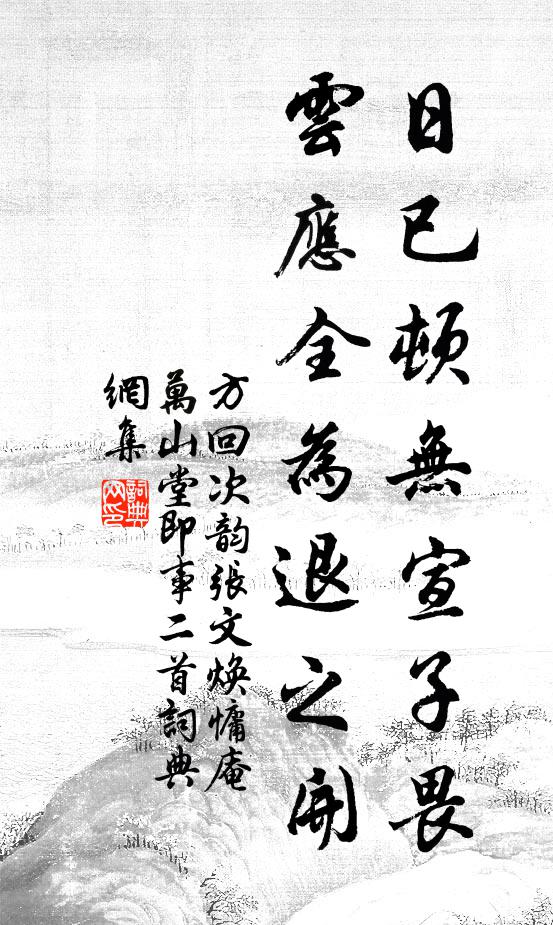 日已頓無宣子畏
雲應全為退之開
方回次韵張文煥慵庵
萬山堂即事二首詞典
網集
詞典
网印